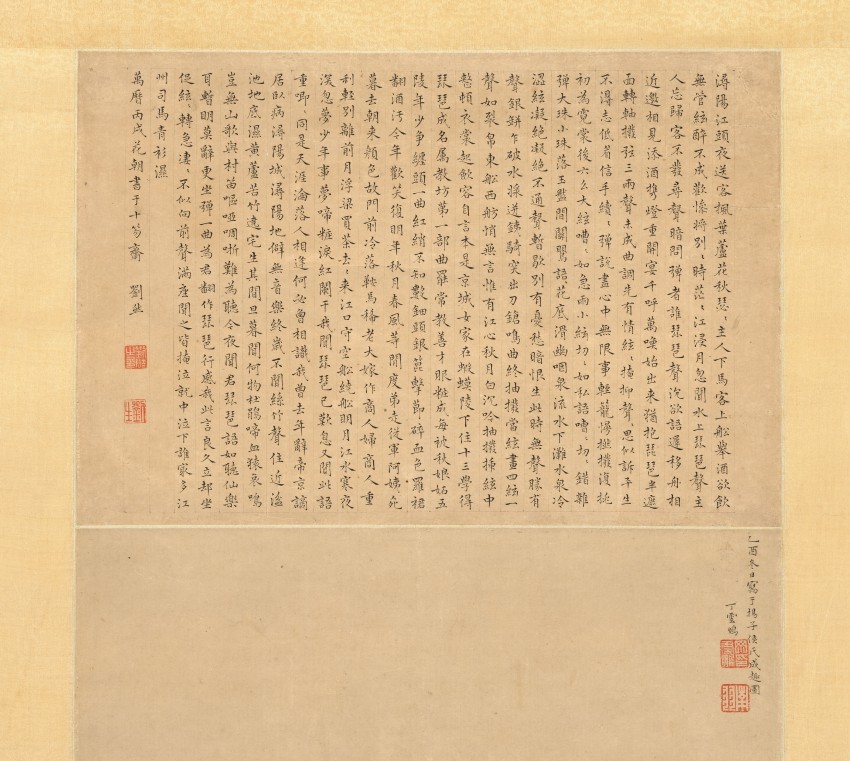 潯陽江頭夜送客楓葉蘆花秋瑟〻主人下馬客上船舉酒欲飲
無管絃醉不成歡慘將別〻時茫〻江浸月忽聞水上琵琶聲主
人忘歸客不發尋聲暗問彈者誰琵琶聲沉欲語遲移舟相
近邀相見添酒攜燈重開宴千呼萬喚始出来猶抱琵琶半遮
面轉軸撥弦三兩聲未成曲調先有情絃〻掩抑聲〻思似訴平生
不得志低眉信手續〻彈說盡心中無限事輕籠慢撚撥復挑
初為霓裳後六么大絃嘈〻如急雨小絃切〻如私語嘈〻切〻錯雜
彈大珠小珠落玉盤間關鶯語花底滑幽咽泉流水下灘水泉冷
澀絃凝絶凝絶不通聲暫歇別有憂愁暗恨生此時無聲勝有
聲銀缾乍破水漿迸銕騎突出刀鎗鳴曲終抽撥當絃畫四絃一
聲如裂帛東船西舫悄無言惟有江心秋月白沉吟抽撥插絃中
整頓衣裳起飲容自言本是京城女家在蝦蟆陵下住十三學得
琵琶成名属教坊第一部曲羅常教善才服粧成每被秋娘妬五
陵年少爭纏頭一曲紅綃不知數鈿頭銀篦擊節碎血色羅裙
翻酒污今年歡笑復明年秋月春風等閒度弟走從軍阿姨死
暮去朝来顏色故門前冷落鞍馬稀老大嫁作商人婦商人重
利輕別離前月浮梁買茶去〻来江口守空船繞船明月江水寒夜
深忽夢少年事夢啼粧淚紅闌干我聞琵琶已歎息又聞此語
重唧〻同是天涯淪落人相逢何必曾相識我曾去年辭帝京謫
居臥病潯陽城潯陽地僻無音樂終歲不聞絲竹聲住近湓
池地底濕黄蘆苦竹遶宅生其間旦暮聞何物杜鵑啼血猿哀鳴
豈無山歌與村笛嘔啞啁哳難為聽今夜聞君琵琶語如聽仙樂
耳暫明莫辭更坐彈一曲為君翻作琵琶行感我此言良久立却坐
促絃〻轉急淒〻不似向前聲滿座聞之皆掩泣就中泣下誰冣多江
州司馬青衫濕
萬曆丙戌花朝書于十笏齋 劉然
乙酉冬日寫于楊子侯氏成趣園
丁雲鵬